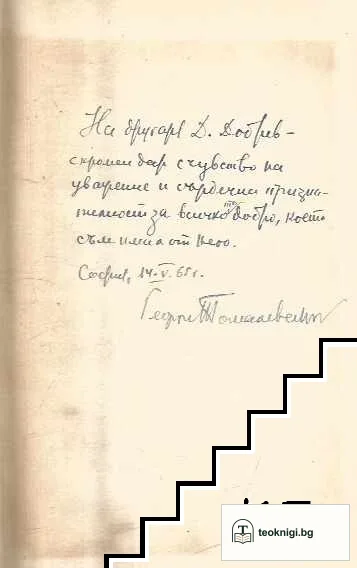 На другаря Д. Добрев –
скромен дар с чувство на
уважение и сърдечна призна-
телност за всичко това добро, което
съм имал от Него.
София, 14.V.65 г.
Георги Томалевски
teoknigi.bg